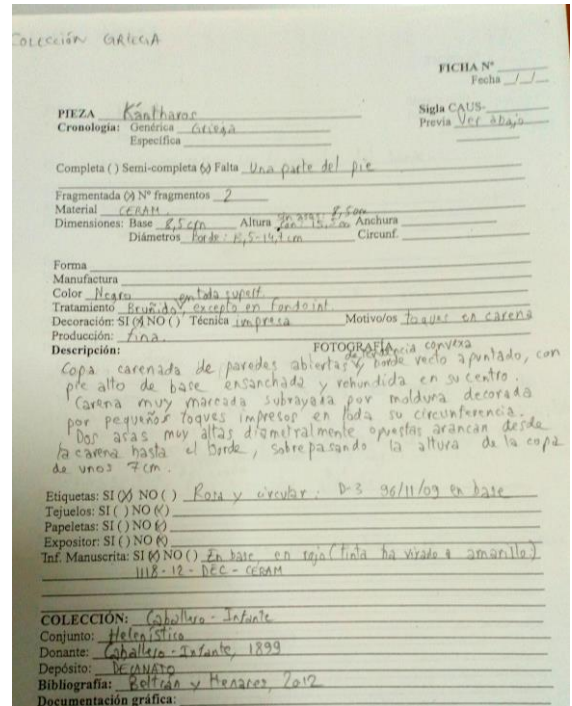 COLECCIÓN GRIEGA
FICHA Nº
Fecha _/_/_
PIEZA Kántharos
Sigla CAUS-
Cronología: Genérica Griega
Previa Ver abajo
Específica
Completa ( ) Semi-completa (x) Falta Una parte del pie
Fragmentada (x) Nº fragmentos 2
Material CERAM.
Dimensiones: Base 8,5 cm Altura sin asas: 8,5cm Con: 15,5 cm Anchura
Diámetros Borde: 13,5-14,7 cm Circunf.
Forma
Manufactura
Color Negro
Tratamiento Bruñido en toda superf. excepto en fondo int.
Decoración: SI (x) NO ( ) Técnica impresa Motivo/os toques en carena
Producción: fina.
Descripción: FOTOGRAFÍA
Copa carenada de paredes abiertas de tendencia convexa y borde recto apuntado, con
pie alto de base ensanchada y rehundida en su centro.
Carena muy marcada subrayada por moldura decorada
por pequeños toques impresos en toda su circunferencia.
Dos asas muy altas diametralmente opuestas arancan desde
la carena hasta el borde, sobrepasando la altura de la copa
de unos 7cm.
Etiquetas: SI (x) NO ( ) Rosa y circular: D-3 96/11/09 en base
Tejuelos: SI ( ) NO (x)
Papeletas: SI ( ) NO (x)
Expositor: SI ( ) NO (x)
Inf. Manuscrita: SI (x) NO ( ) En base en rojo (tinta ha virado a amarillo)
1118-12-DEC-CERAM
COLECCIÓN: Caballero-Infante
Conjunto: Helenístico
Donante: Caballero-Infante, 1899
Depósito: DECANATO
Bibliografía: Beltrán y Henares, 2012
Documentación gráfica: